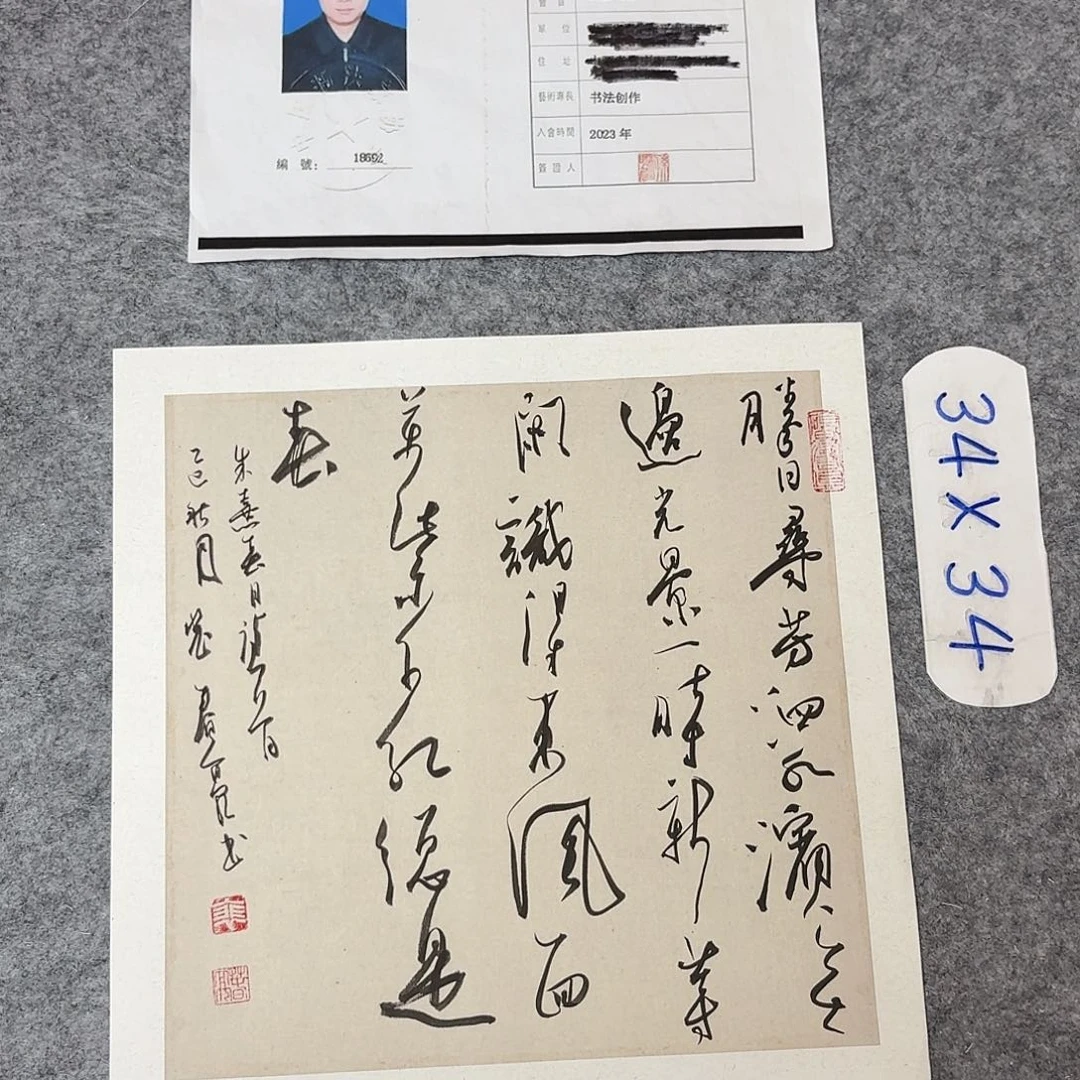 單 位
住 址
藝術專長 书法创作
入會時間 2023 年
簽證人
編 號:
34X34
勝日尋芳泗水濱無
邊光景一時新等
閑識得東風面
萬紫千紅總是
春
朱熹春日詩一首
乙巳秋月 書